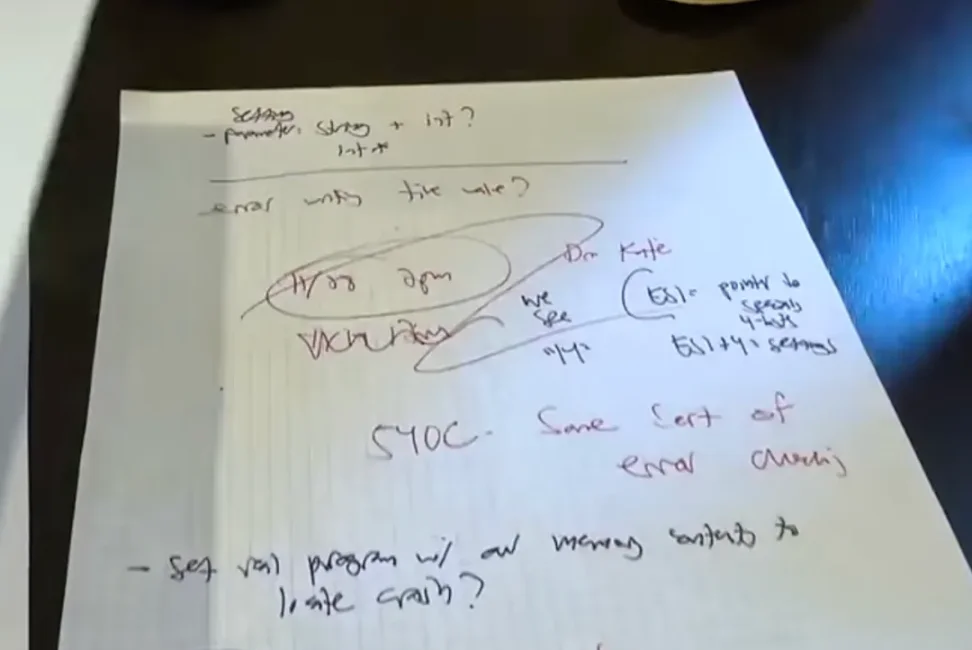 settings
- parameter: string + int?
int *
error writing file value?
Dr Kate
11/22 2pm
we
see
ESI = pointer to
4-bytes
ESI+4 = settings
540C - Some sort of
error checking
- set real program w/ our memory contents to
locate crash?